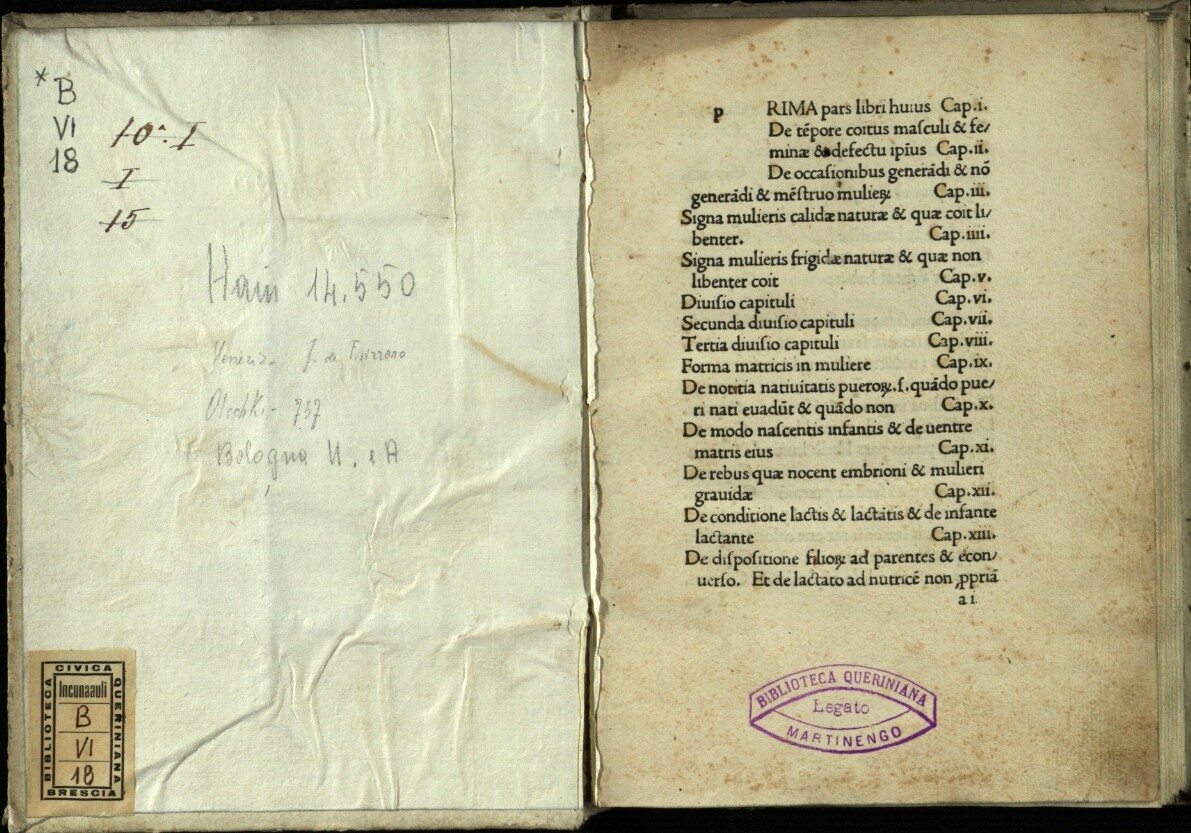 * B
VI
18
10ª. I
I
15
Hain 14.550
Venezia - J. de Fivizzano
Olschki - 737
Bologna U. e A
CIVICA
BIBLIOTECA
QUERINIANA
Incunauli
B
VI
18
BRESCIA
p RIMA pars libri huius Cap.i.
De tēpore coitus masculi & fe/
minæ & defectu ipīus Cap.ii.
De occasionibus generādi & nō
generādi & mēstruo mulieꝝ Cap.iii.
Signa mulieris calidæ naturæ & quæ coit li/
benter. Cap.iiii.
Signa mulieris frigidæ naturæ & quæ non
libenter coit Cap.v.
Diuisio capituli Cap.vi.
Secunda diuisio capituli Cap.vii.
Tertia diuisio capituli Cap.viii.
Forma matricis in muliere Cap.ix.
De notitia natiuitatis pueroꝝ.s.quādo pue/
ri nati euadūt & quādo non Cap.x.
De modo nascentis infantis & de uentre
matris eius Cap.xi.
De rebus quæ nocent embrioni & mulieri
grauidæ Cap.xii.
De conditione lactis & lactātis & de infante
lactante Cap.xiii.
De dispositione filioꝝ ad parentes & econ/
uerso. Et de lactato ad nutricē non ꝓpriā
a i
BIBLIOTECA QUERINIANA
Legato
MARTINENGO